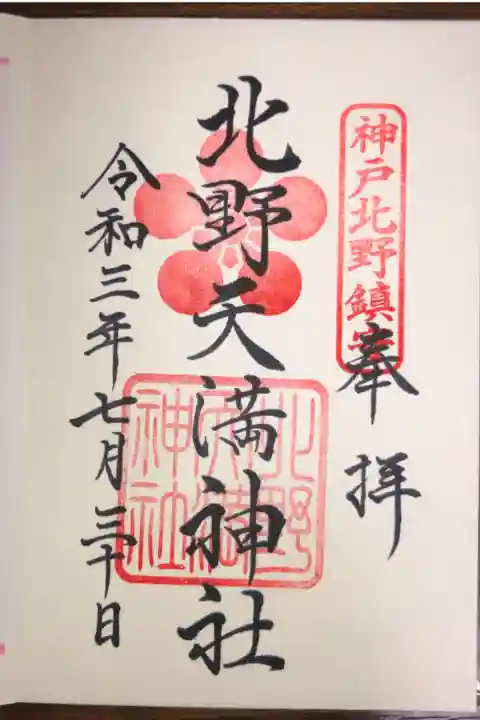 神戸北野鎮
奉拝
北野天満神社
令和三年七月三十日
北野天満神社